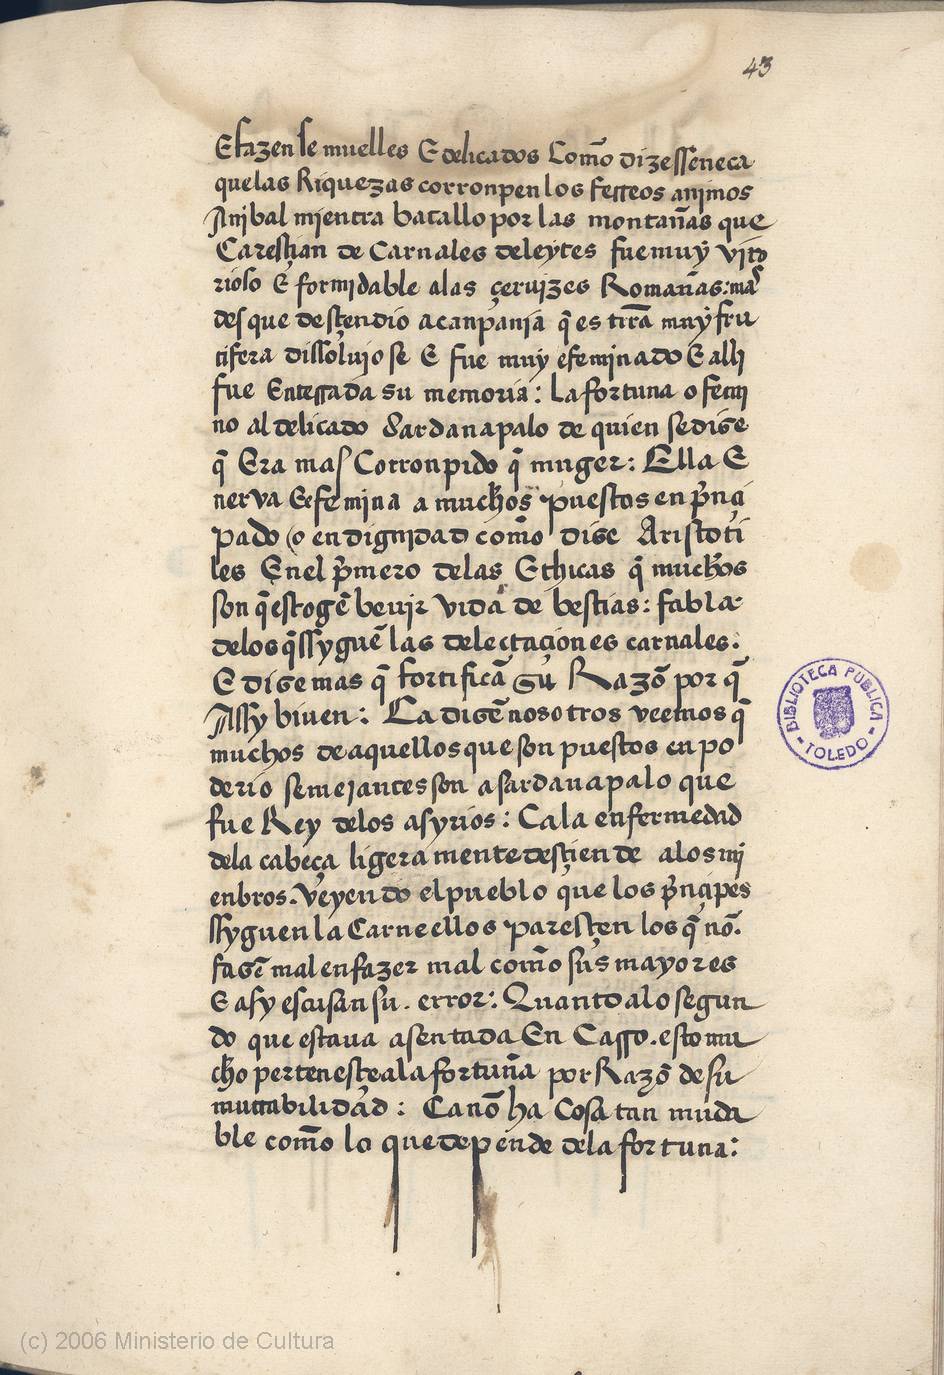 43
E fazen se muelles E delicados Como dize sseneca
que las Riquezas corronpen los ferreos animos
Anibal mientra batallo por las montañas que
Caresçian de Carnales deleytes fue muy vito
rioso E formidable a las çeruizes Romañas: mas
des que desçendio a canpania q̃ es tr̃ra muy fru
tifera dissoluio se E fue muy efeminado E alli
fue Enterrada su memoria: La fortuna o femi
no al delicado Sardanapalo de quien se dise
q̃ Era mas Corronpido q̃ muger: Ella E
nerva E efemina a muchos puestos en prinçi
pado / o en dignidad como dise Aristoti
les En el p̃mero de las Ethicas q̃ muchos
son q̃ escogẽ beuir vida de bestias: fabla
de los q̃ ssyguẽ las delectaçiones carnales.
E dise mas q̃ fortificã su Razõ por q̃
Assy biuen: Ca disẽ nosotros veemos q̃
muchos de aquellos que son puestos en po
derio semejantes son a sardanapalo que
fue Rey de los asyrios: Ca la enfermedad
de la cabeça ligera mente desçiende a los mi
enbros. Veyendo el pueblo que los prinçipes
ssyguen la Carne ellos paresçen los q̃ nõ.
fasẽ mal en fazer mal como sus mayores
E asy escusan su. error: Quanto a lo segun
do que estaua asentada En Carro. esto mu
cho pertenesçe a la fortuna por Razõ de su
mutabilidad: Ca nõ ha Cosa tan muda
ble como lo que depende de la fortuna:
BIBLIOTECA PUBLICA
- TOLEDO -
(c) 2006 Ministerio de Cultura